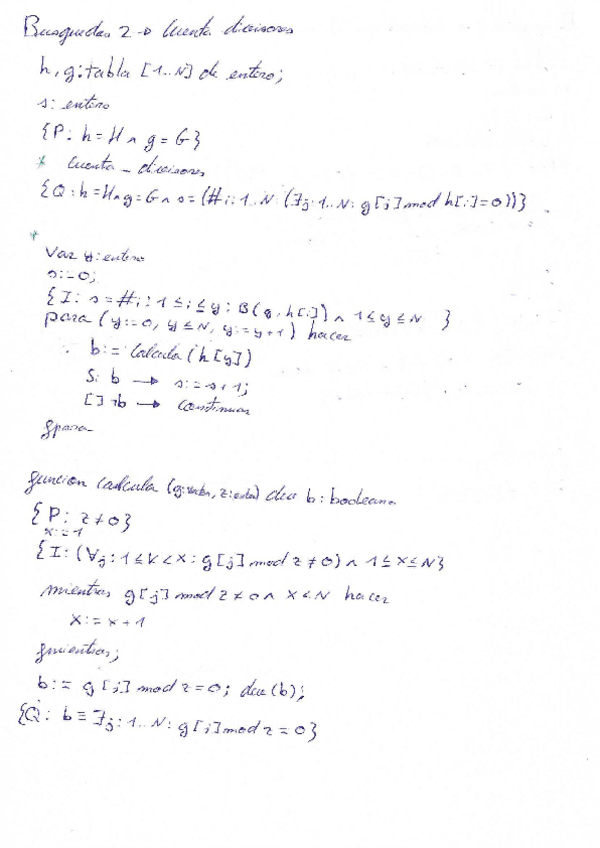 Busquedas 2 → Cuenta divisores
h, g: tabla [1..N] de entero;
s: entero
{P: h = H ∧ g = G}
* Cuenta _ divisores
{Q: h=H ∧ g=G ∧ s = (#i: 1..N: (∃j: 1..N: g[j] mod h[i]=0))}
*
Var y: entero
s:=0;
{I: s = #i: 1 ≤ i ≤ y: B(g, h[i]) ∧ 1 ≤ y ≤ N }
para (y:=0, y ≤ N, y:=y+1) hacer
b:= calcula (h[y])
Si b → s:= s+1;
[] ¬b → continuar
fpara
funcion calcula (g: tabla, z: entero) dev b: booleano
{P: z≠0}
x:=1
{I: (∀j: 1 ≤ K < X: g[j] mod z ≠ 0) ∧ 1 ≤ X ≤ N}
mientras g[j] mod z ≠ 0 ∧ X < N hacer
X:= x+1
fmientras;
b:= g[j] mod z = 0; dev (b);
{Q: b ≡ ∃j: 1..N: g[j] mod z = 0}